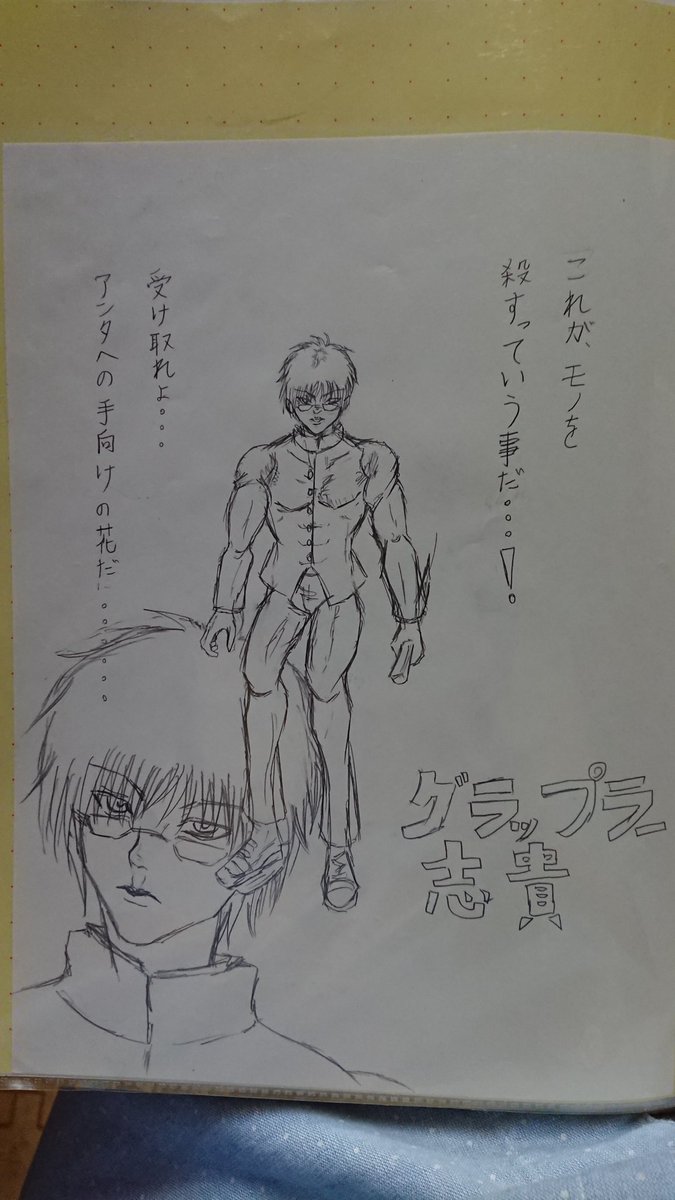 これが、モノを
殺すっていう事だ。。。!。
受け取れよ。。。
アンタへの手向けの花だ。。。。。。。
グラップラー
志貴